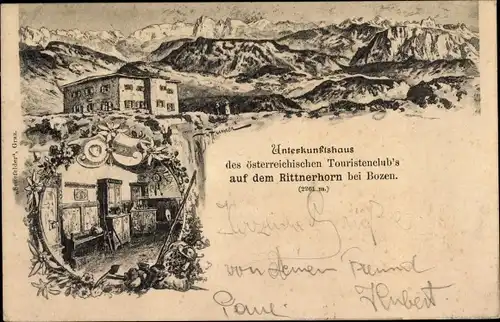 Unterkunftshaus
des österreichischen Touristenclub's
auf dem Rittnerhorn bei Bozen.
(2261 m.)
Herzliche Grüße
von Deinem Freund
Hubert